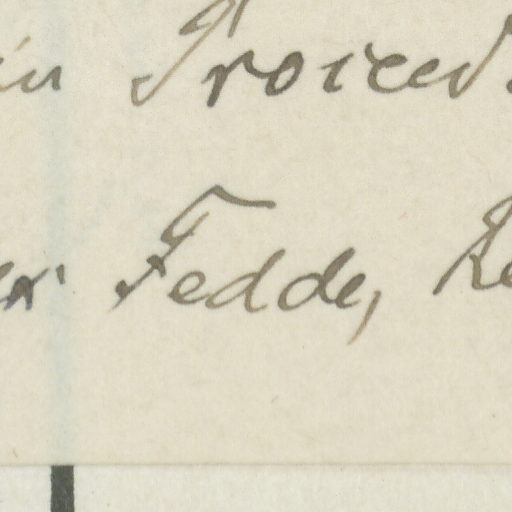 in Proceed.
Fedde, Re